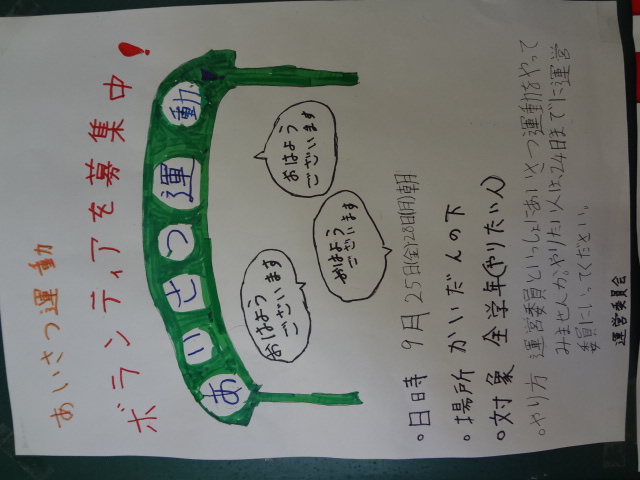 あいさつ運動
ボランティアを募集中!
あいさつ運動
おはよう
ございます
おはよう
ございます
おはよう
ございます
。日時 9月25日(金)28日(月)朝
。場所 かいだんの下
。対象 全学年(やりたい人)
。やり方 運営委員といっしょにあいさつ運動をやって
みませんか。やりたい人は24日までに運営
委員にいってください。
運営委員会